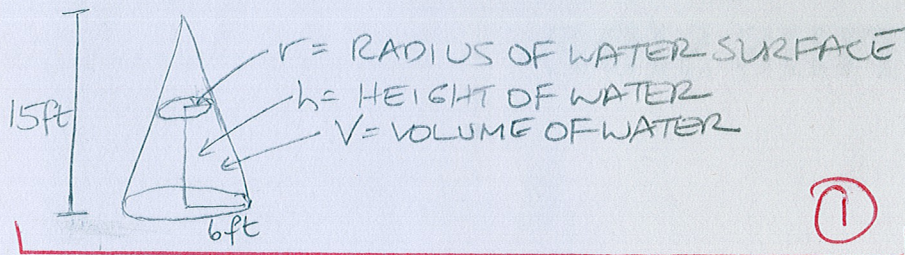 r = RADIUS OF WATER SURFACE
h = HEIGHT OF WATER
15ft
V = VOLUME OF WATER
6ft
1